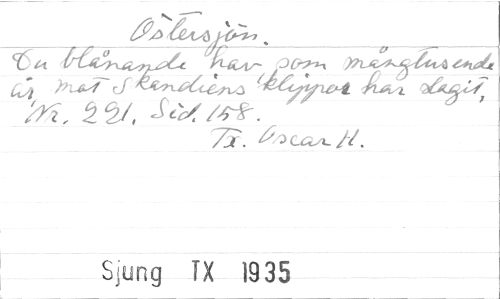 Östersjön.
Du blånande hav som mångtusende
år, mot Skandiens klippor har slagit,
Nr. 221. Sid. 158.
Tx. Oscar H.
Sjung TX 1935